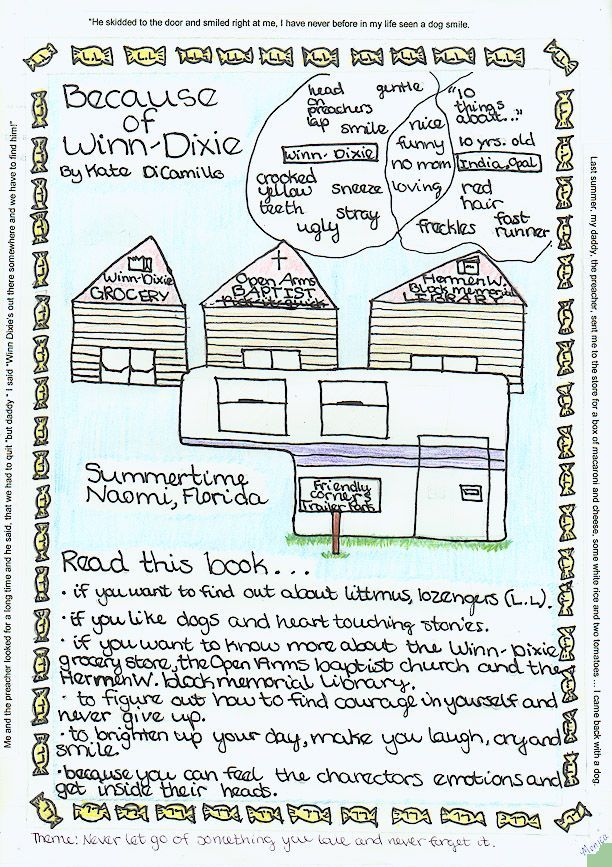 "He skidded to the door and smiled right at me, I have never before in my life seen a dog smile.
Me and the preacher looked for a long time and he said, that we had to quit "but daddy " I said "Winn Dixie's out there somewhere and we have to find him!"
Last summer, my daddy, the preacher, sent me to the store for a box of macaroni and cheese, some white rice and two tomatoes ... I came back with a dog.
Because
of
Winn-Dixie
By Kate DiCamillo
head
on
preachers
lap
gentle
smile
Winn-Dixie
crooked
yellow
teeth
sneeze
stray
ugly
nice
funny
no mom
loving
freckles
"10
things
about..."
10 yrs. old
India, Opal
red
hair
fast
runner
Winn-Dixie
GROCERY
Open Arms
BAPTIST
Herman W.
Block memorial
LIBRARY
Summertime
Naomi, Florida
Friendly
corners
Trailer Park
Read this book...
• if you want to find out about littmus, lozengers (L.L).
• if you like dogs and heart touching stories.
• if you want to know more about the Winn-Dixie
grocery store, the Open Arms baptist church and the
Herman W. block memorial library.
• to figure out how to find courage in yourself and
never give up.
• to brighten up your day, make you laugh, cry and
smile.
• because you can feel the charectors emotions and
get inside their heads.
Theme: Never let go of something you love and never forget it.